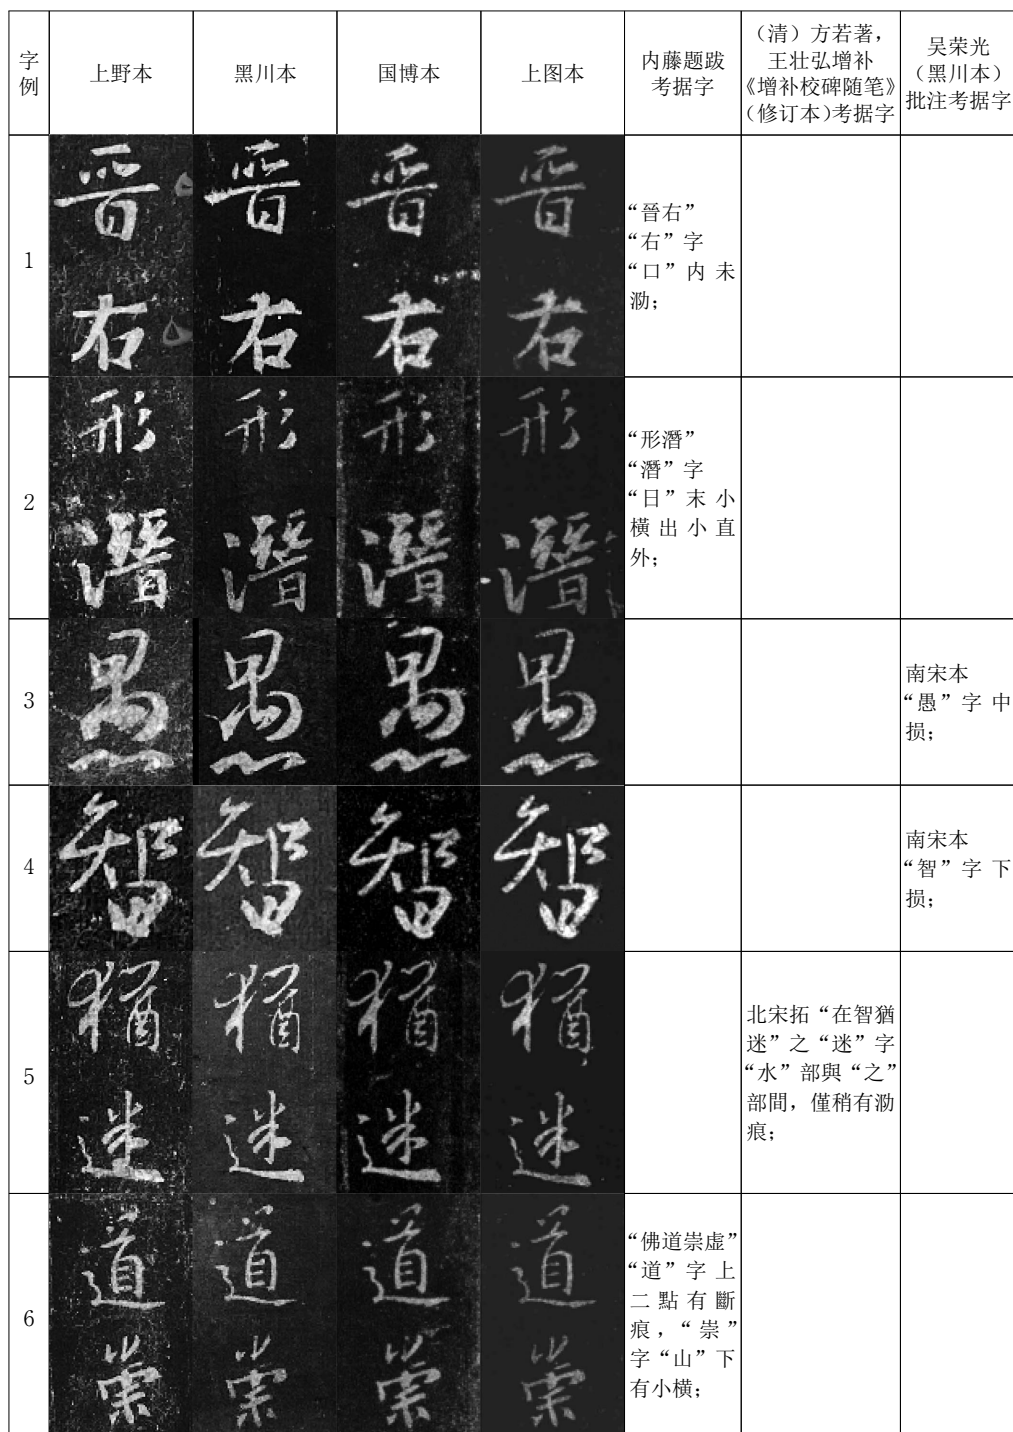 字例
上野本
黑川本
国博本
上图本
内藤题跋
考据字
（清）方若著，
王壮弘增补
《增补校碑随笔》
（修订本）考据字
吴荣光
（黑川本）
批注考据字
1
晉
右
晉
右
晉
右
晉
右
“晉右”
“右”字
“口”内未
泐；
2
形
潛
形
潛
形
潛
形
潛
“形潛”
“潛”字
“日”末小
橫出小直
外；
3
愚
愚
愚
愚
南宋本
“愚”字中
损；
4
智
智
智
智
南宋本
“智”字下
损；
5
猶
迷
猶
迷
猶
迷
猶
迷
北宋拓“在智猶
迷”之“迷”字
“水”部與“之”
部間，僅稍有泐
痕；
6
道
崇
道
崇
道
崇
道
崇
“佛道崇虚”
“道”字上
二點有斷
痕，“崇”
字“山”下
有小橫；